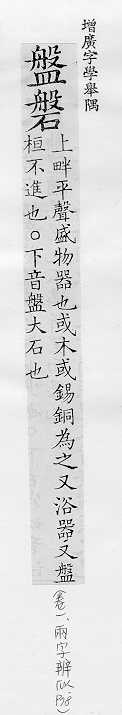 增廣字學舉隅
盤磐
上畔平聲盛物器也或木或錫銅為之又浴器又盤
桓不進也○下音盤大石也
(卷一、兩字辨似、